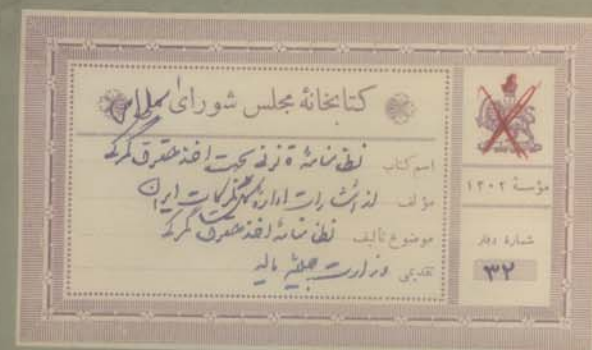 کتابخانهٔ مجلس شورای اسلامی
اسم کتاب نظامنامهٔ قانونی بحث اخذ حقوق گمرکی
مؤلف از انتشارات ادارهٔ کل گمرکات ایران
موضوع تألیف نظامنامهٔ اخذ حقوق گمرک
تقدیمی وزارت جلیلهٔ مالیه
مؤسسهٔ ۱۳۰۲
شمارهٔ دفتر
۳۲